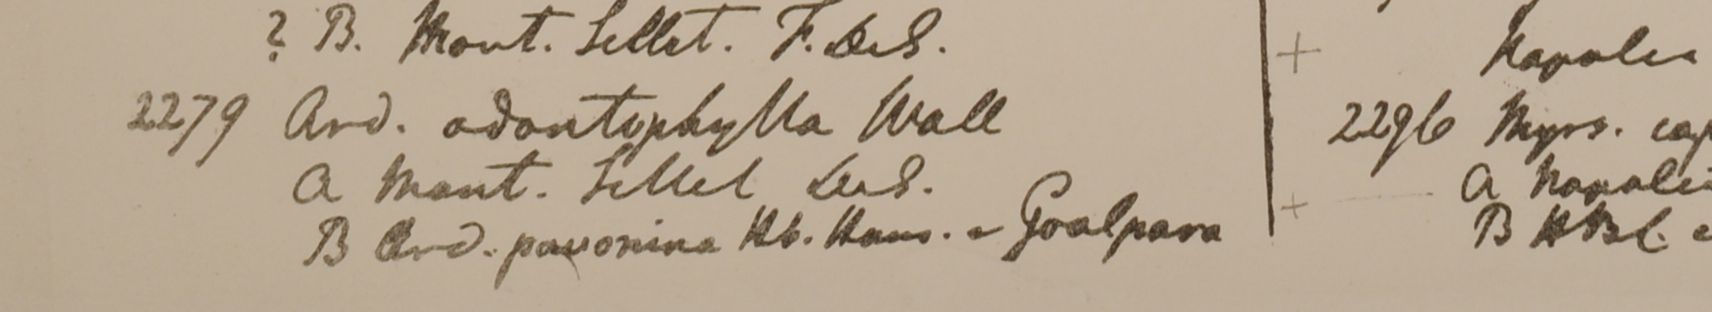 ? B. Mont. Sillet. F. De S.
2279 Ard. odontophylla Wall
a Mont. Sillet De S.
B Ard. pavonina Hb. Ham. e Goalpara
+ Napalia
2296 Myrs. cap
+ a Napalia
B HBC. e